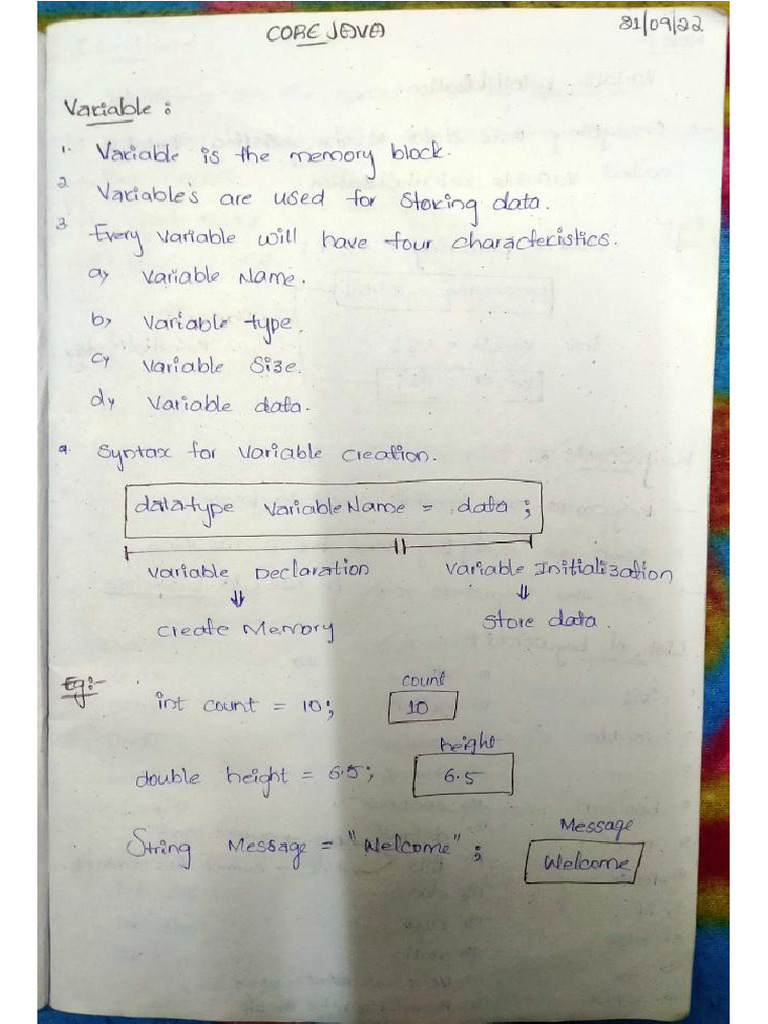 CORE JAVA
21/09/22
Variable :
1. Variable is the memory block.
2. Variable's are used for storing data.
3. Every variable will have four characteristics.
a) Variable Name.
b) Variable type.
c) Variable Size.
d) Variable data.
4. Syntax for Variable Creation.
datatype VariableName = data ;
Variable Declaration
Variable Initialization
Create Memory
Store data.
Eg:-
int count = 10;
count
10
double height = 6.5;
height
6.5
String Message = "Welcome" ;
Message
Welcome